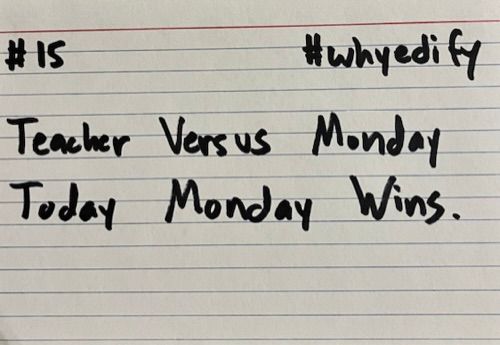 #15 #whyedify
Teacher Versus Monday
Today Monday Wins.